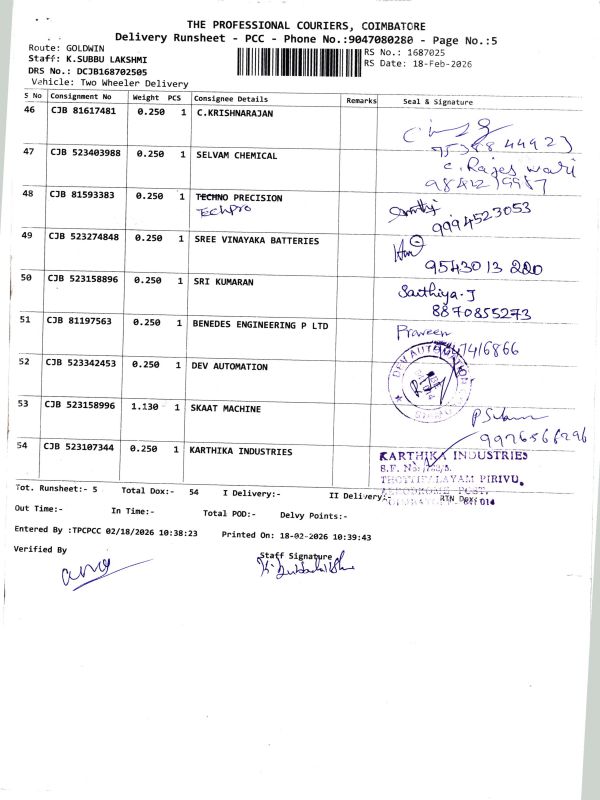 THE PROFESSIONAL COURIERS, COIMBATORE
Delivery Runsheet - PCC - Phone No.:9047080280 - Page No.:5
Route: GOLDWIN
RS No.: 1687025
Staff: K.SUBBU LAKSHMI
RS Date: 18-Feb-2026
DRS No.: DCJB168702505
Vehicle: Two Wheeler Delivery
S No Consignment No Weight PCS Consignee Details Remarks Seal & Signature
46 CJB 81617481 0.250 1 C.KRISHNARAJAN
47 CJB 523403988 0.250 1 SELVAM CHEMICAL
C. Rajeswari
48 CJB 81593383 0.250 1 TECHNO PRECISION
Techpro
9994523053
49 CJB 523274848 0.250 1 SREE VINAYAKA BATTERIES
9543013 220
50 CJB 523158896 0.250 1 SRI KUMARAN
Sathiya.J
8870855273
51 CJB 81197563 0.250 1 BENEDES ENGINEERING P LTD
Praveen
52 CJB 523342453 0.250 1 DEV AUTOMATION
DEV AUTOMATION
53 CJB 523158996 1.130 1 SKAAT MACHINE
9976566296
54 CJB 523107344 0.250 1 KARTHIKA INDUSTRIES
KARTHIKA INDUSTRIES
THOTTIPALAYAM PIRIVU,
AERODROME POST,
Tot. Runsheet:- 5 Total Dox:- 54 I Delivery:- II Delivery:- RTN Dox:-
Out Time:- In Time:- Total POD:- Delvy Points:-
Entered By :TPCPCC 02/18/2026 10:38:23 Printed On: 18-02-2026 10:39:43
Verified By
Staff Signature